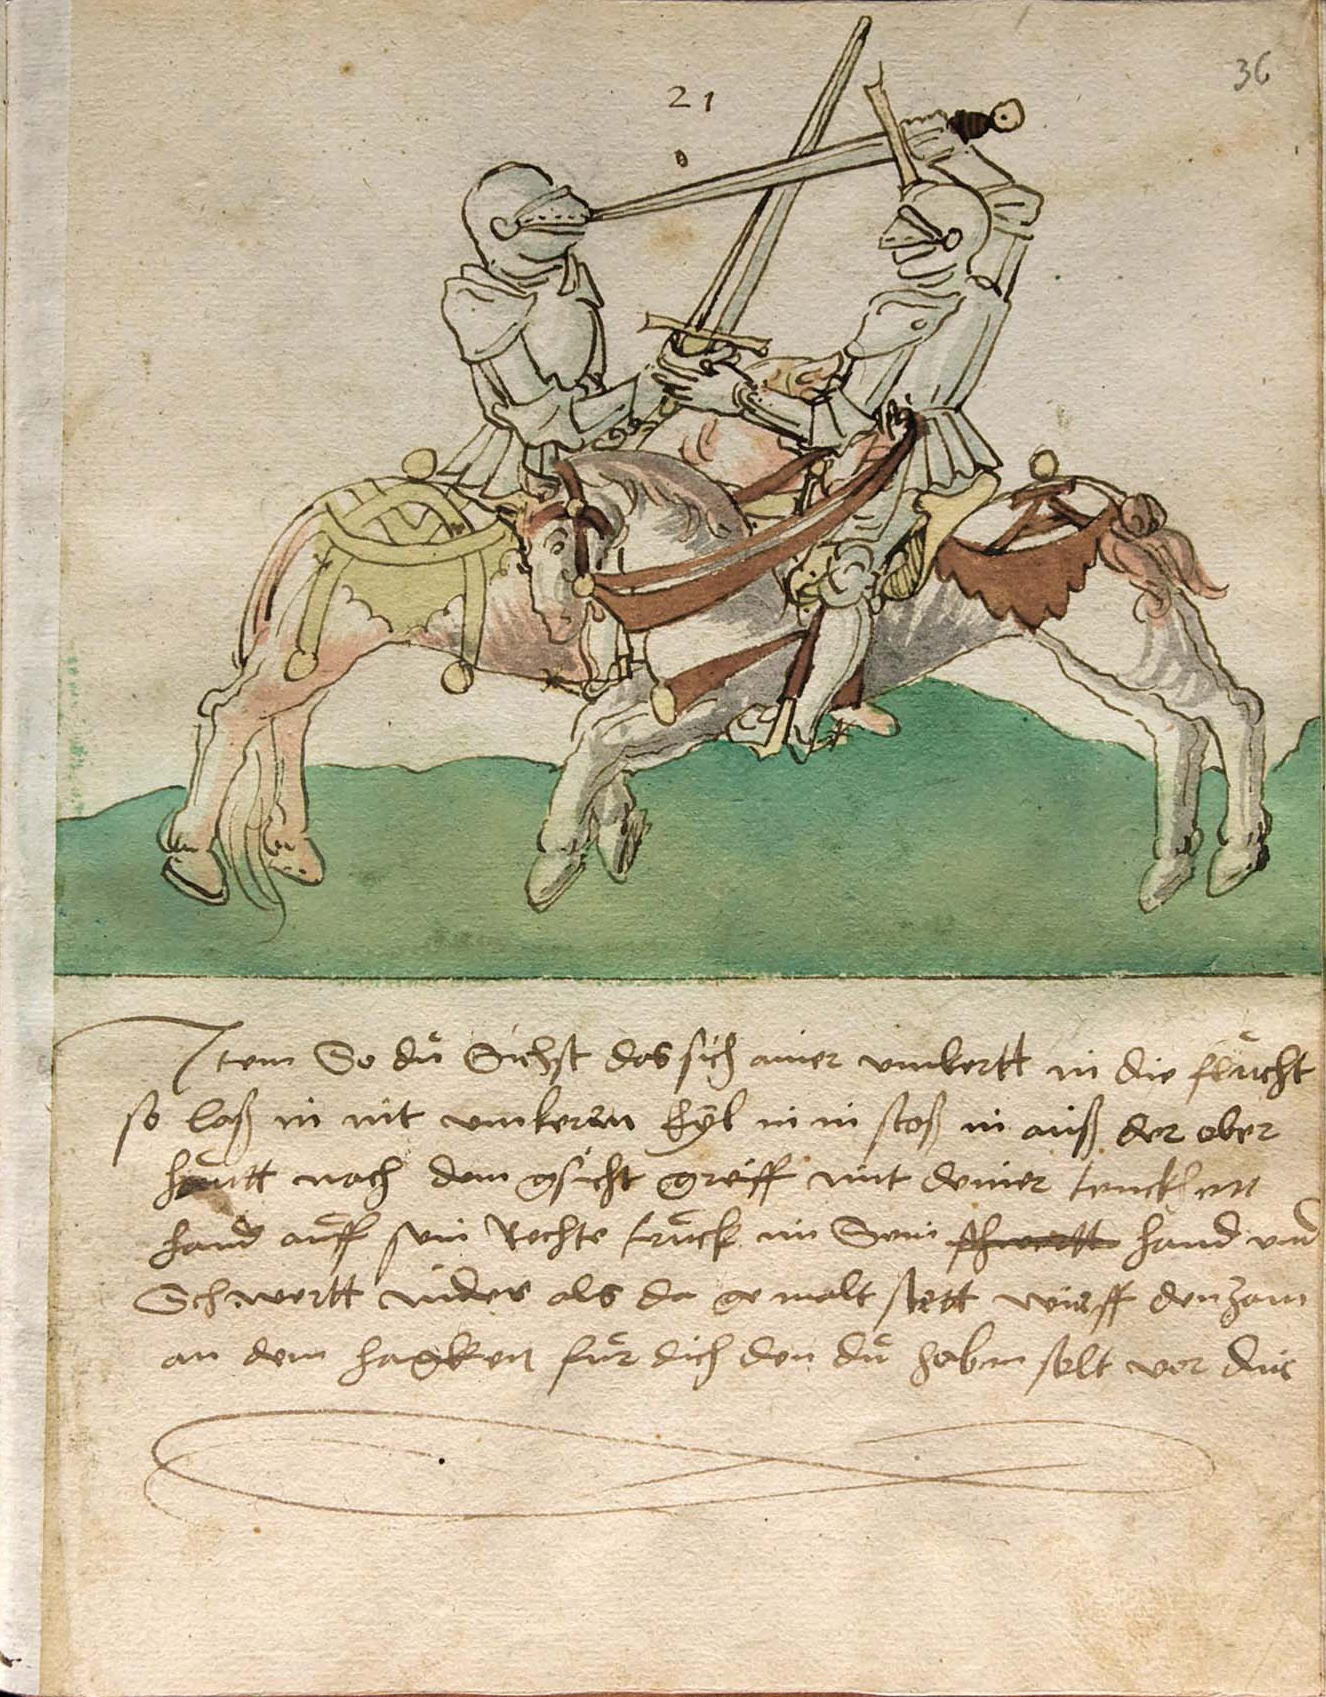 36
21
Item So dü Sichst das sich ainer vmkertt in die flücht
so laß in nit vmkeren Eyl in in stoß in auß der ober
hautt nach dem gsicht greiff mit deiner tencken
hand auff sein Rechte trück im Sein schwertt hand vnd
Schwertt nider als da gemalt stett wirff den zam
an dem hagken für dich den dü haben solt vor dir